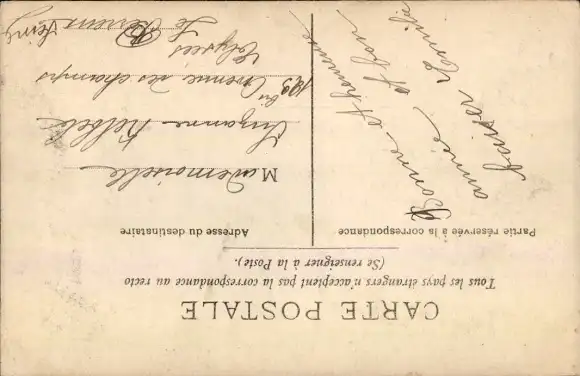 CARTE POSTALE
Tous les pays étrangers n'acceptent pas la correspondance au recto
(Se renseigner à la Poste).
Partie réservée à la correspondance
Adresse du destinataire
Bonne et heureuse
année et bon
baiser
Mademoiselle
Suzanne
123 bis Avenue des champs
Elysées
Le Perreux